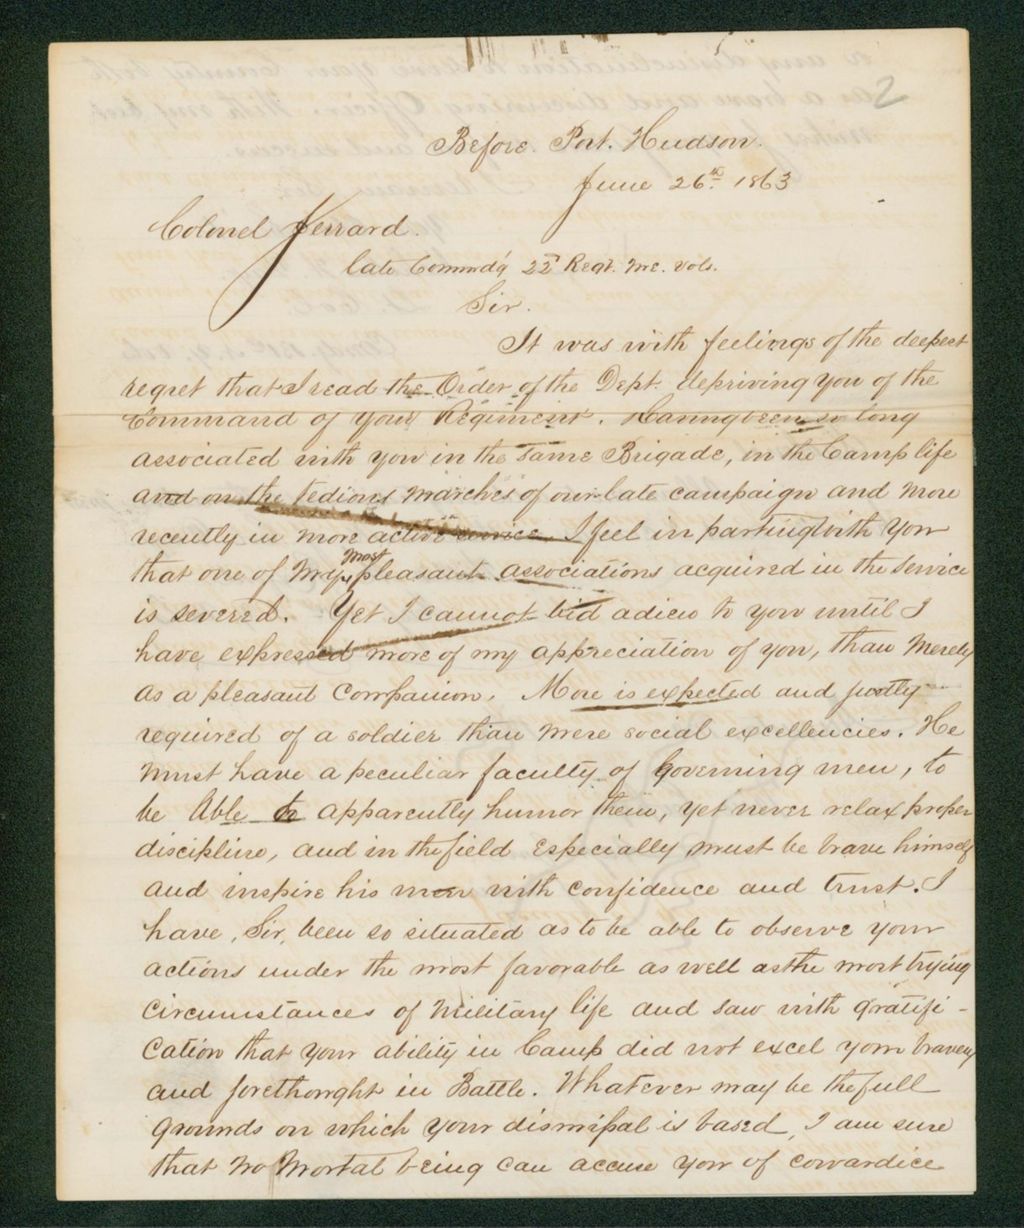 2
Before Port. Hudson.
June 26th 1863
Colonel Jerrard.
late Commd'g 22d Regt. Me. Vols.
Sir.
It was with feelings of the deepest
regret that I read the Order of the Dept. depriving you of the
Command of your Regiment. Having been so long
associated with you in the same Brigade, in the Camp life
and on the tedious marches of our late campaign and more
recently in more active service I feel in parting with you
that one of my most pleasant associations acquired in the service
is severed. Yet I cannot bid adieu to you until I
have expressed more of my appreciation of you, than merely
as a pleasant companion. More is expected and justly
required of a soldier than mere social excellencies. He
must have a peculiar faculty of governing men, to
be Able to apparently humor them, yet never relax proper
discipline, and in the field especially must be brave himself
and inspire his men with confidence and trust. I
have, Sir, been so situated as to be able to observe your
actions under the most favorable as well as the most trying
circumstances of military life and saw with gratifi-
cation that your ability in Camp did not excel your bravery
and forethought in Battle. Whatever may be the full
grounds on which your dismissal is based, I am sure
that no Mortal being can accuse you of cowardice